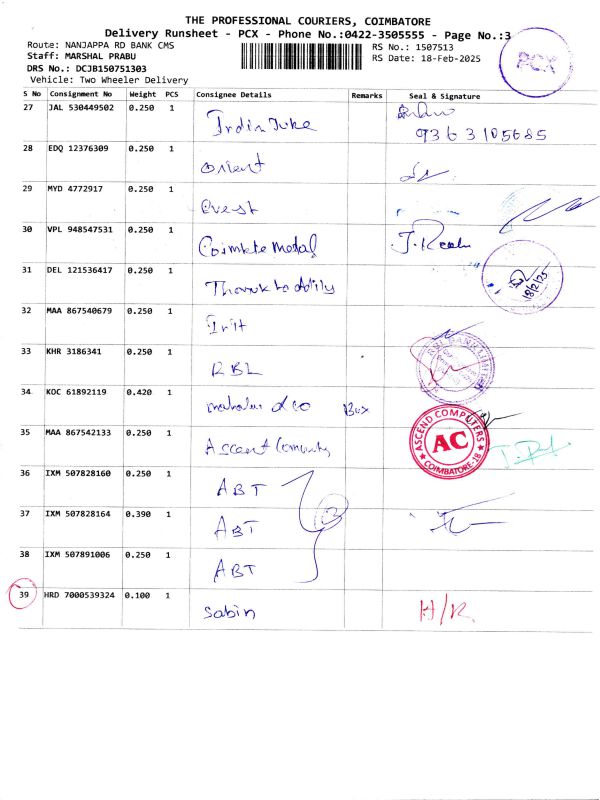 THE PROFESSIONAL COURIERS, COIMBATORE
Delivery Runsheet - PCX - Phone No.:0422-3505555 - Page No.:3
Route: NANJAPPA RD BANK CMS
RS No.: 1507513
Staff: MARSHAL PRABU
RS Date: 18-Feb-2025
DRS No.: DCJB150751303
Vehicle: Two Wheeler Delivery
PCX
S No Consignment No Weight PCS Consignee Details Remarks Seal & Signature
27 JAL 530449502 0.250 1
9363105685
28 EDQ 12376309 0.250 1 Orient
29 MYD 4772917 0.250 1 Everst
30 VPL 948547531 0.250 1 Metal
31 DEL 121536417 0.250 1
18/2/25
32 MAA 867540679 0.250 1
33 KHR 3186341 0.250 1 RBL
RBL BANK LIMITED
34 KOC 61892119 0.420 1 Box
35 MAA 867542133 0.250 1 Ascent
ASCEND COMPUTERS
AC
COIMBATORE-18
36 IXM 507828160 0.250 1 ABT
37 IXM 507828164 0.390 1 ABT 3
38 IXM 507891006 0.250 1 ABT
39 HRD 7000539324 0.100 1 Sabin H/R